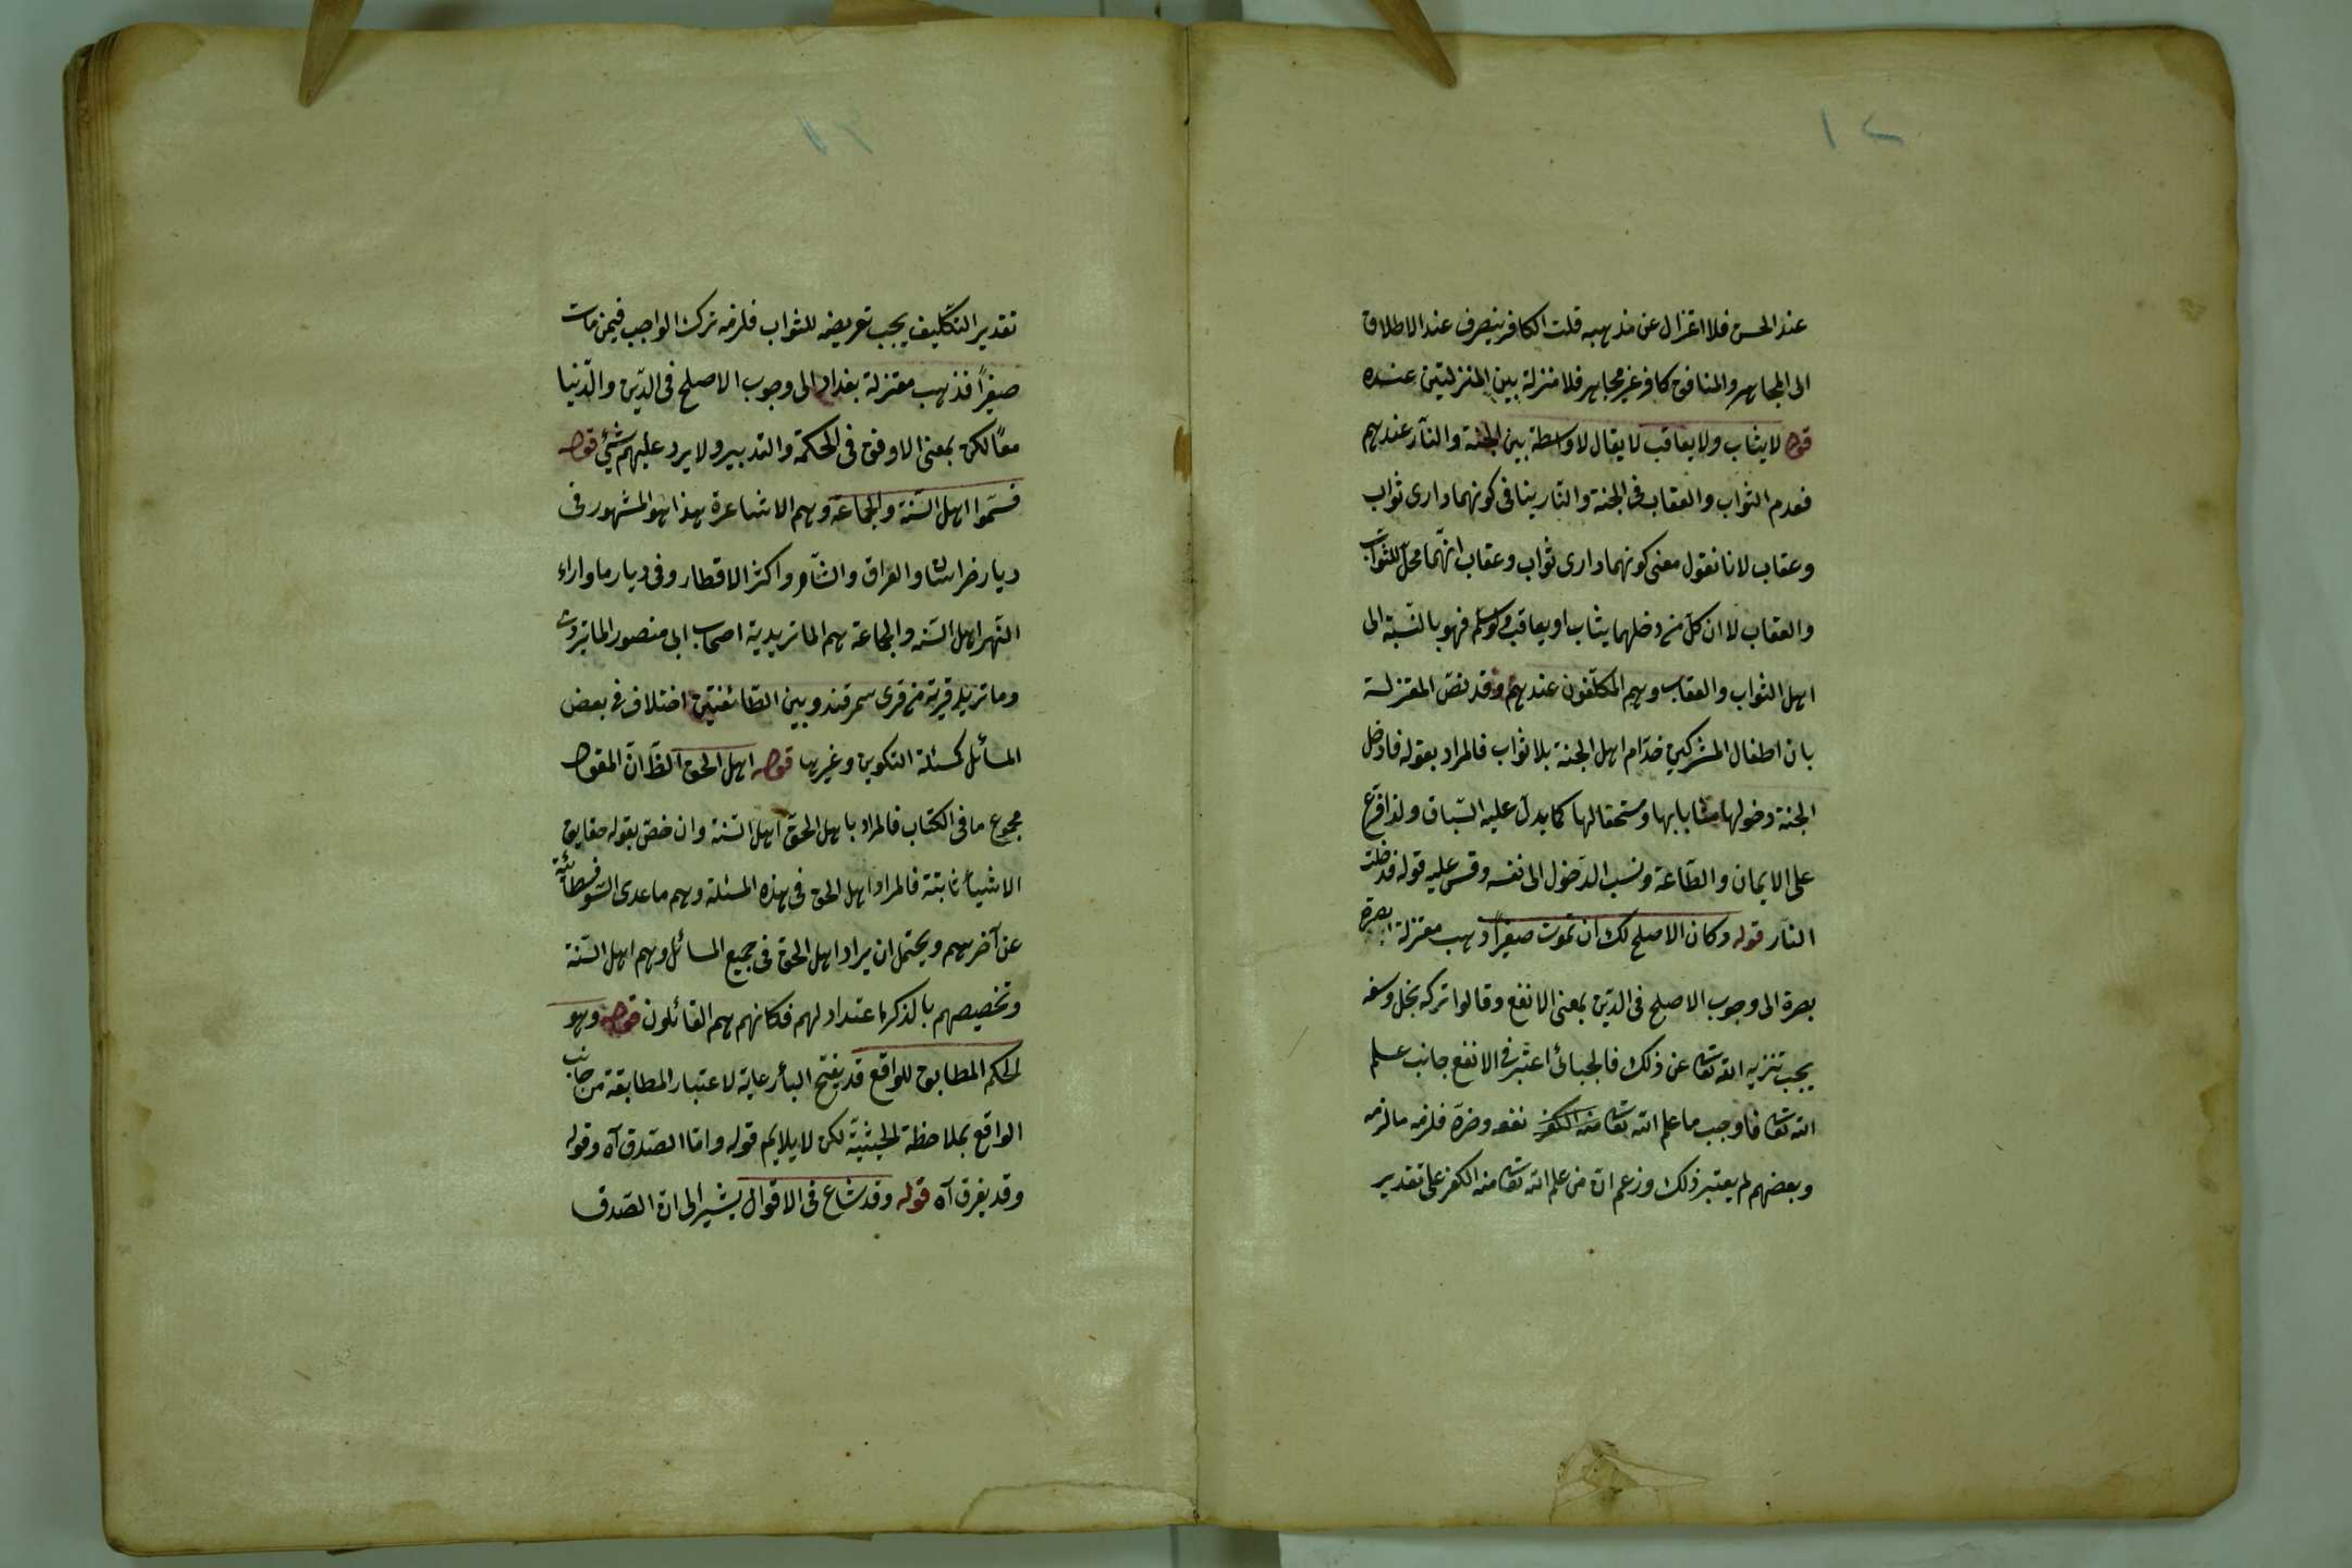 ١٢
عند الحسن فلا اعتزال عن مذهبه قلت الكافر ينصرف عند الاطلاق
الى المجاهر والمنافق كافر غير مجاهر فلا منزلة بين المنزلتين عنده
قوله لا يثاب ولا يعاقب لا يقال لا واسطة بين الجنة والنار عندهم
فعدم الثواب والعقاب فى الجنة والنار ينافى كونهما دارى ثواب
وعقاب لانا نقول معنى كونهما دارى ثواب وعقاب انهما محل للثواب
والعقاب لا ان كل من دخلهما يثاب او يعاقب ولو سلم فهو بالنسبة الى
اهل الثواب والعقاب وهم المكلفون عندهم وقد نص المعتزلة
بان اطفال المشركين خدام اهل الجنة بلا ثواب فالمراد بقوله فادخل
الجنة دخولها مثابا بها ومستحقا لها كما يدل عليه السباق ولذا فرع
على الايمان والطاعة ونسب الدخول الى نفسه وقس عليه قوله فدخلت
النار قوله وكان الاصلح لك ان تموت صغيرا ذهب معتزلة بصرة
بصرة الى وجوب الاصلح فى الدين بمعنى الانفع وقالوا تركه بخل وسفه
يجب تنزيه الله تعالى عن ذلك فالجبائى اعتبر فى الانفع جانب علم
الله تعالى فاوجب ما علم الله تعالى منه الكفر نفعه وضره فلزمه ما لزمه
وبعضهم لم يعتبر ذلك وزعم ان من علم الله تعالى منه الكفر على تقدير
تقدير التكليف يجب تعريضه للثواب فلزمه ترك الواجب فيمن مات
صغيرا فذهب معتزلة بغداد الى وجوب الاصلح فى الدين والدنيا
معا لكن بمعنى الاوفق فى الحكمة والتدبير ولا يرد عليهم شئ قوله
فسموا اهل السنة والجماعة وهم الاشاعرة هذا هو المشهور فى
ديار خراسان والعراق والشام واكثر الاقطار وفى ديار ما وراء
النهر اهل السنه والجماعة هم الماتريدية اصحاب ابى منصور الماتريدى
وماتريد قرية من قرى سمرقند وبين الطائفتين اختلاف فى بعض
المسائل كمسئلة التكوين وغيرها قوله اهل الحق الظ ان المقول
مجموع ما فى الكتاب فالمراد باهل الحق اهل السنة وان خص بقوله حقايق
الاشياء ثابتة فالمراد اهل الحق فى هذه المسئلة وهم ما عدى السوفسطائية
عن آخرهم ويحتمل ان يراد اهل الحق فى جميع المسائل وهم اهل السنة
وتخصيصهم بالذكر اعتداد لهم فكانهم هم القائلون قوله وهو
الحكم المطابق للواقع قد يفتح الباء رعاية لاعتبار المطابقة من جانب
الواقع بملاحظة الحيثية لكن لا يلايم قوله واما الصدق آه وقوله
وقد يفرق آه قوله وقد شاع فى الاقوال يشير الى ان الصدق